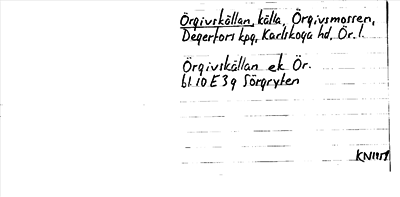 Örgivskällan, källa, Örgivsmossen,
Degerfors kpg, Karlskoga hd, Ör. l.
Örgivskällan ek Ör.
bl 10 E 3 g Sörgryten